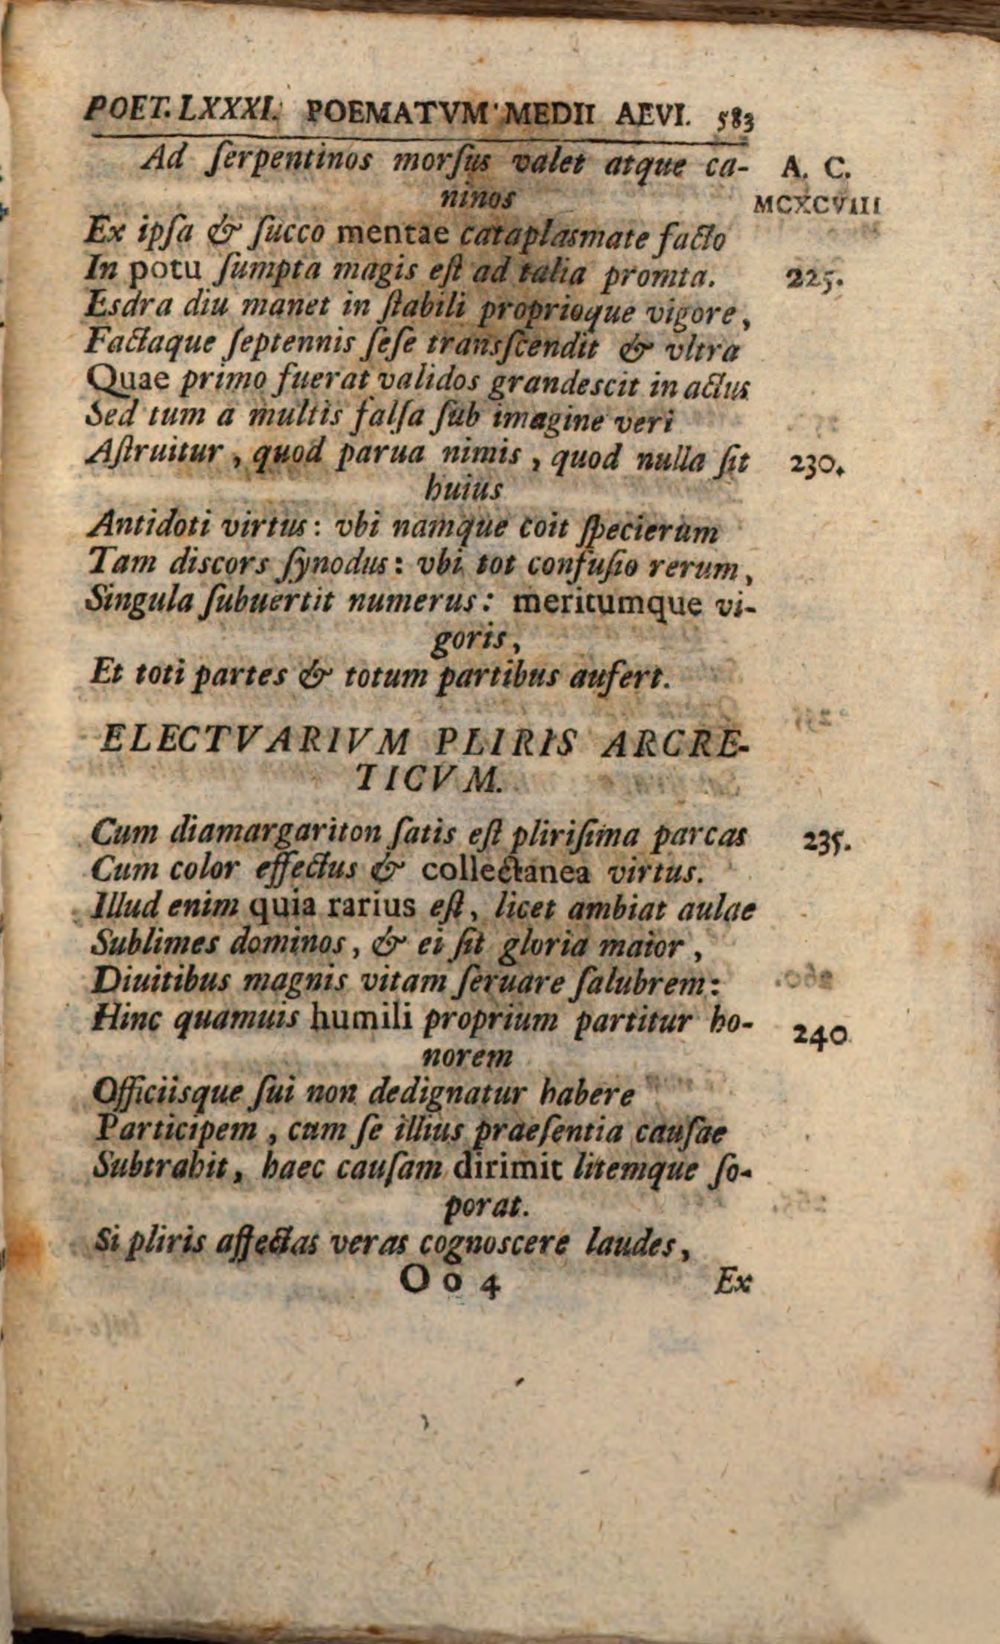 POET. LXXXI. POEMATVM MEDII AEVI. 583
Ad ſerpentinos morſus valet atque ca- A. C.
ninos MCXCVIII
Ex ipſa & ſucco mentae cataplasmate facto
In potu ſumpta magis eſt ad talia promta. 225.
Esdra diu manet in ſtabili proprioque vigore,
Factaque ſeptennis ſeſe transſcendit & vltra
Quae primo fuerat validos grandescit in actus
Sed tum a multis falſa ſub imagine veri
Aſtruitur, quod parua nimis, quod nulla ſit 230.
huius
Antidoti virtus: vbi namque coit ſpecierum
Tam discors ſynodus: vbi tot confuſio rerum,
Singula ſubuertit numerus: meritumque vi-
goris,
Et toti partes & totum partibus aufert.
ELECTVARIVM PLIRIS ARCRE-
TICVM.
Cum diamargariton ſatis eſt pliriſima parcas 235.
Cum color effectus & collectanea virtus.
Illud enim quia rarius eſt, licet ambiat aulae
Sublimes dominos, & ei ſit gloria maior,
Diuitibus magnis vitam ſeruare ſalubrem:
Hinc quamuis humili proprium partitur ho- 240
norem
Officiisque ſui non dedignatur habere
Participem, cum ſe illius praeſentia cauſae
Subtrahit, haec cauſam dirimit litemque ſo-
porat.
Si pliris affectas veras cognoscere laudes,
O o 4 Ex